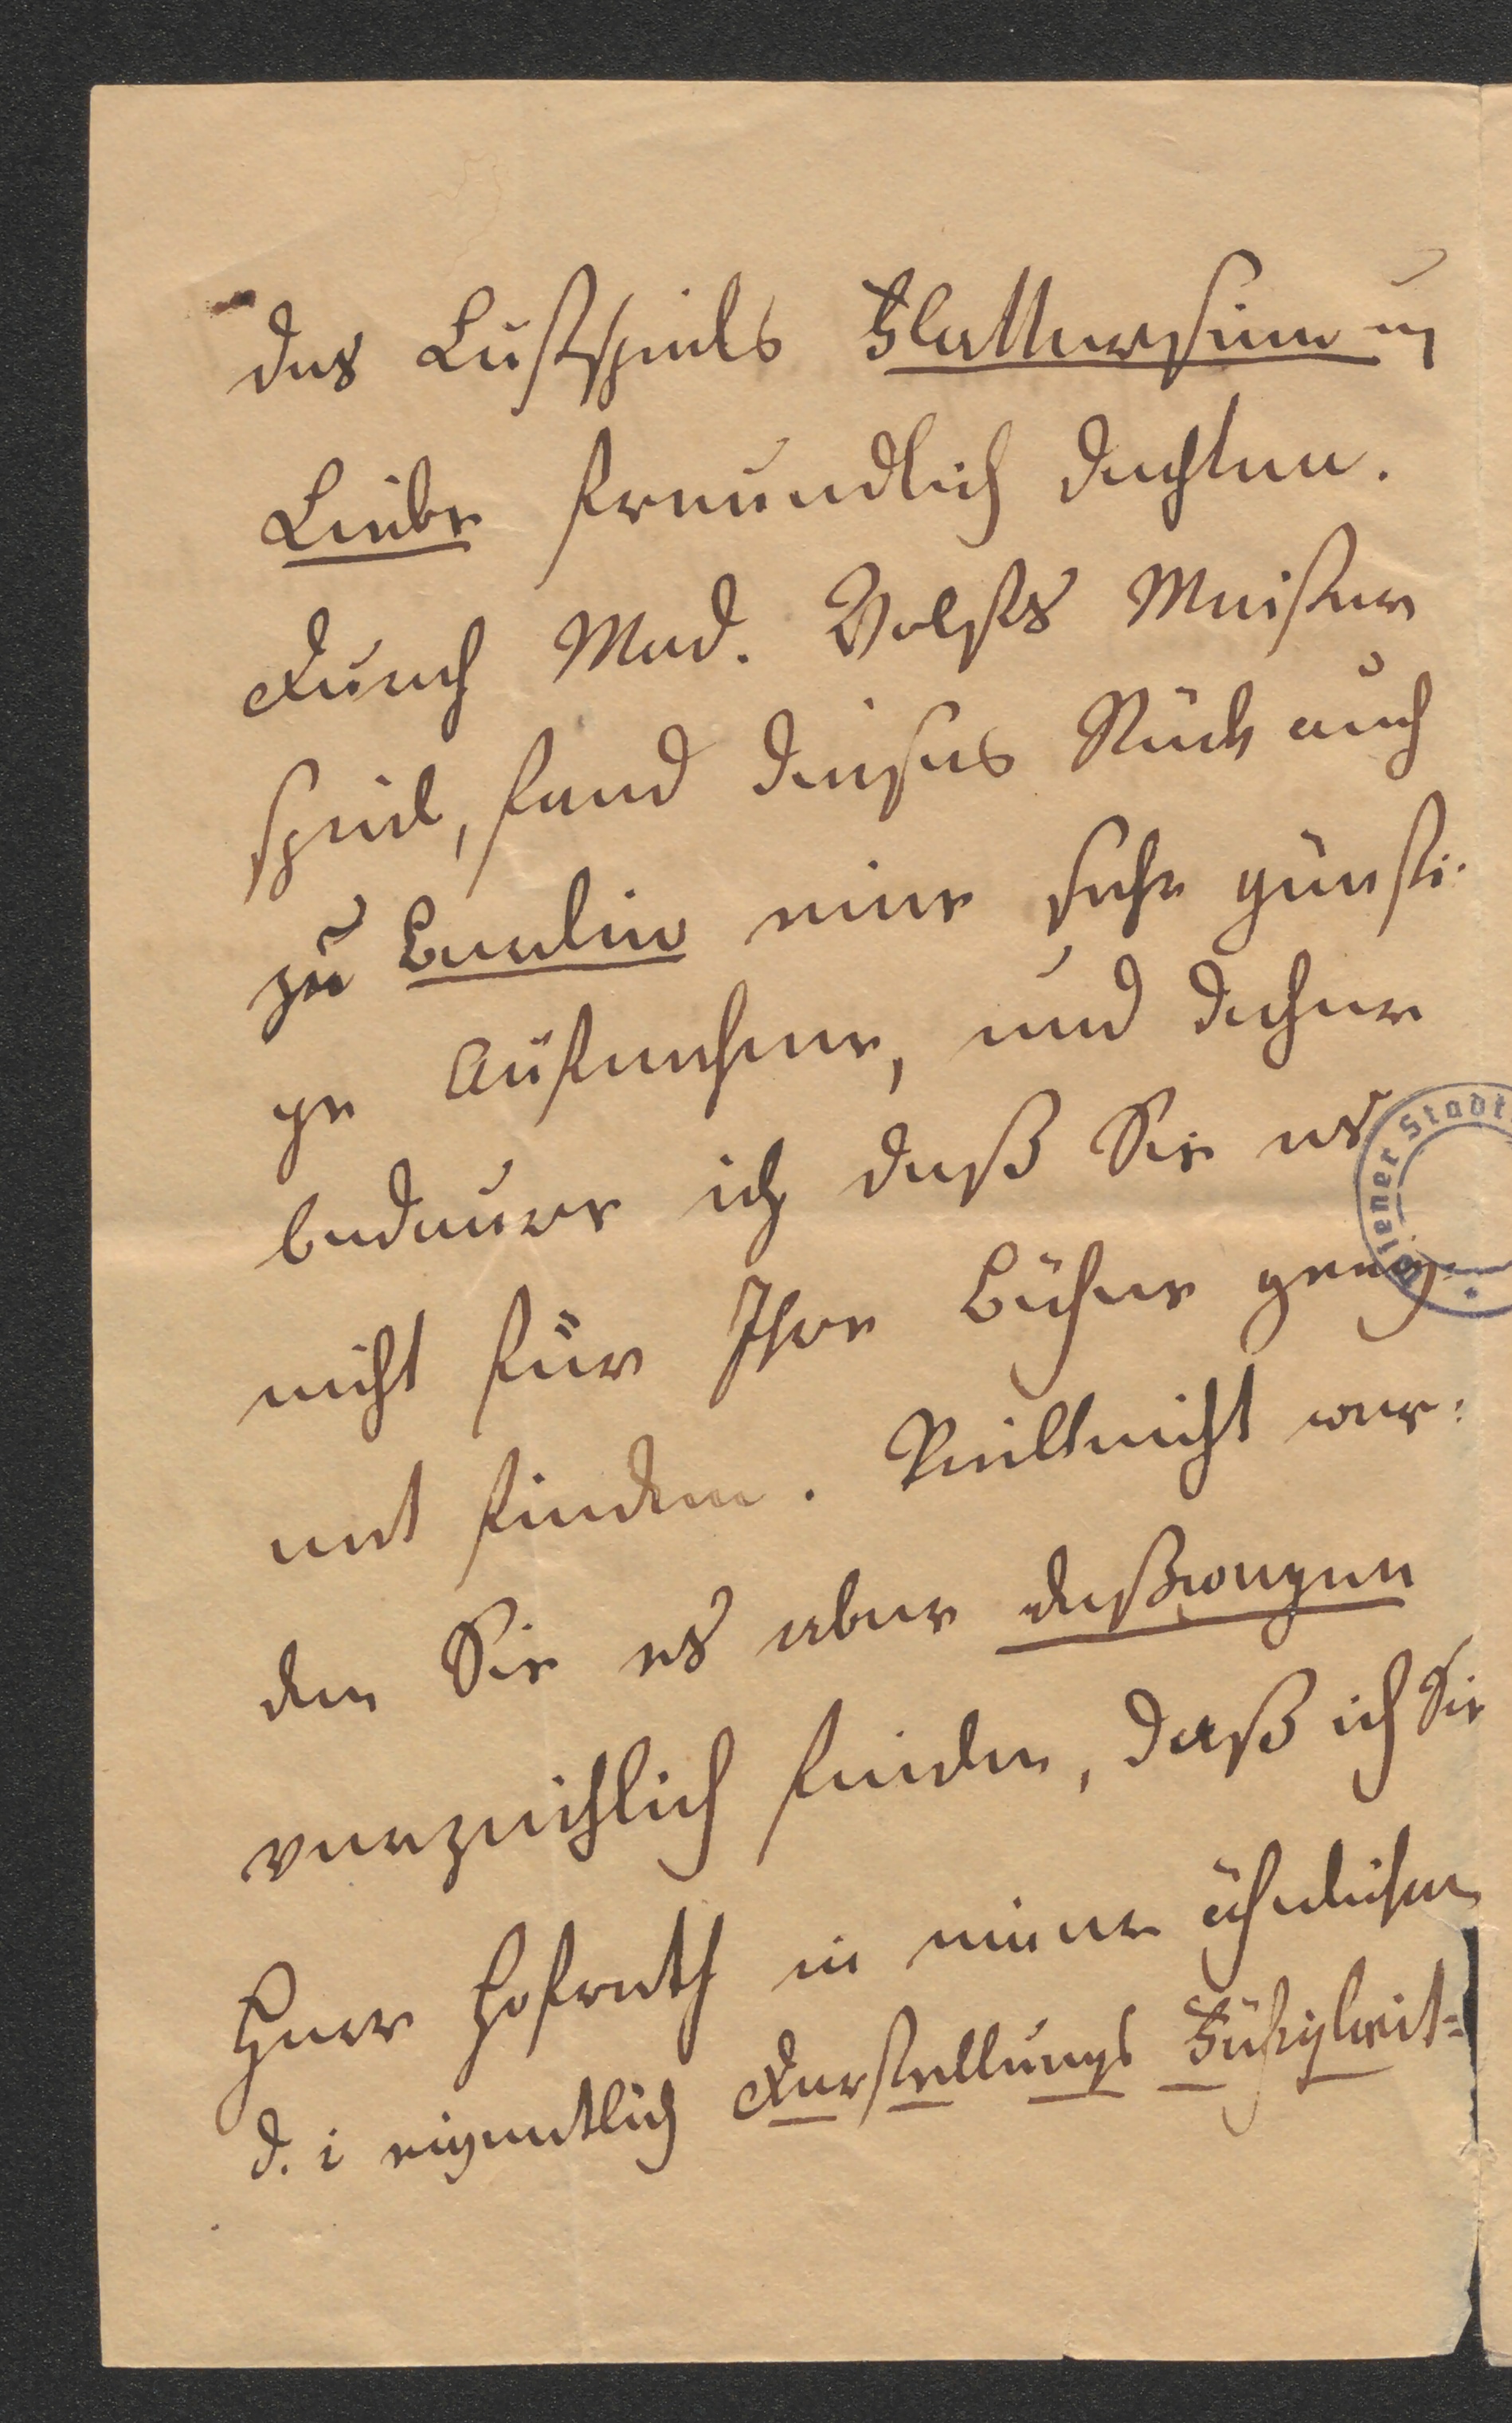 des Lustspiels Flattersinn u
Liebe freundlich dachten.
Durch Mad. Wolffs Meister
spiel, fand dieses Stück auch
zu Berlin eine sehr günsti-
ge Aufnahme, und daher
bedaure ich daß Sie es
nicht für Ihre Bühne geeig-
net finden. Vielleicht wer-
den Sie es aber deßwegen
verzeihlich finden, daß ich Sie
Herr Hofrath in einer ähnlichen
d. i eigentlich Darstellungs Fähigkeit-
Wiener Stadt